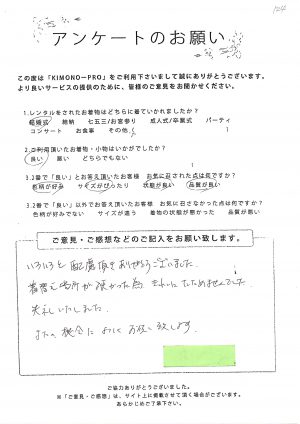 124
アンケートのお願い
この度は「KIMONO－PRO」をご利用下さいまして誠にありがとうございます。
より良いサービスの提供のために、皆様のご意見をお聞かせください。
1.レンタルをされたお着物はどちらに着ていかれましたか？
結婚式 結納 七五三/お宮参り 成人式/卒業式 パーティ
コンサート お食事 その他( )
2.ご利用頂いたお着物・小物はいかがでしたか？
良い 悪い どちらでもない
3.2番で「良い」とお答え頂いたお客様 お気に召された点は何ですか？
色柄が好み サイズがぴったり 状態が良い 品質が良い
3.2番で「良い」以外でお答え頂いたお客様 お気に召さなかった点は何ですか？
色柄が好みでない サイズが違う 着物の状態が悪かった 品質が悪い
ご意見・ご感想などのご記入をお願い致します。
いろいろと配慮頂きありがとうございました。
着替え場所が狭かった為 きれいにたためませんでした
失礼いたしました。
またの機会によろしくお願い致します。
ご協力ありがとうございました。
※「ご意見・ご感想」は、サイト上に掲載させて頂く場合がございます。
あらかじめご了承下さい。